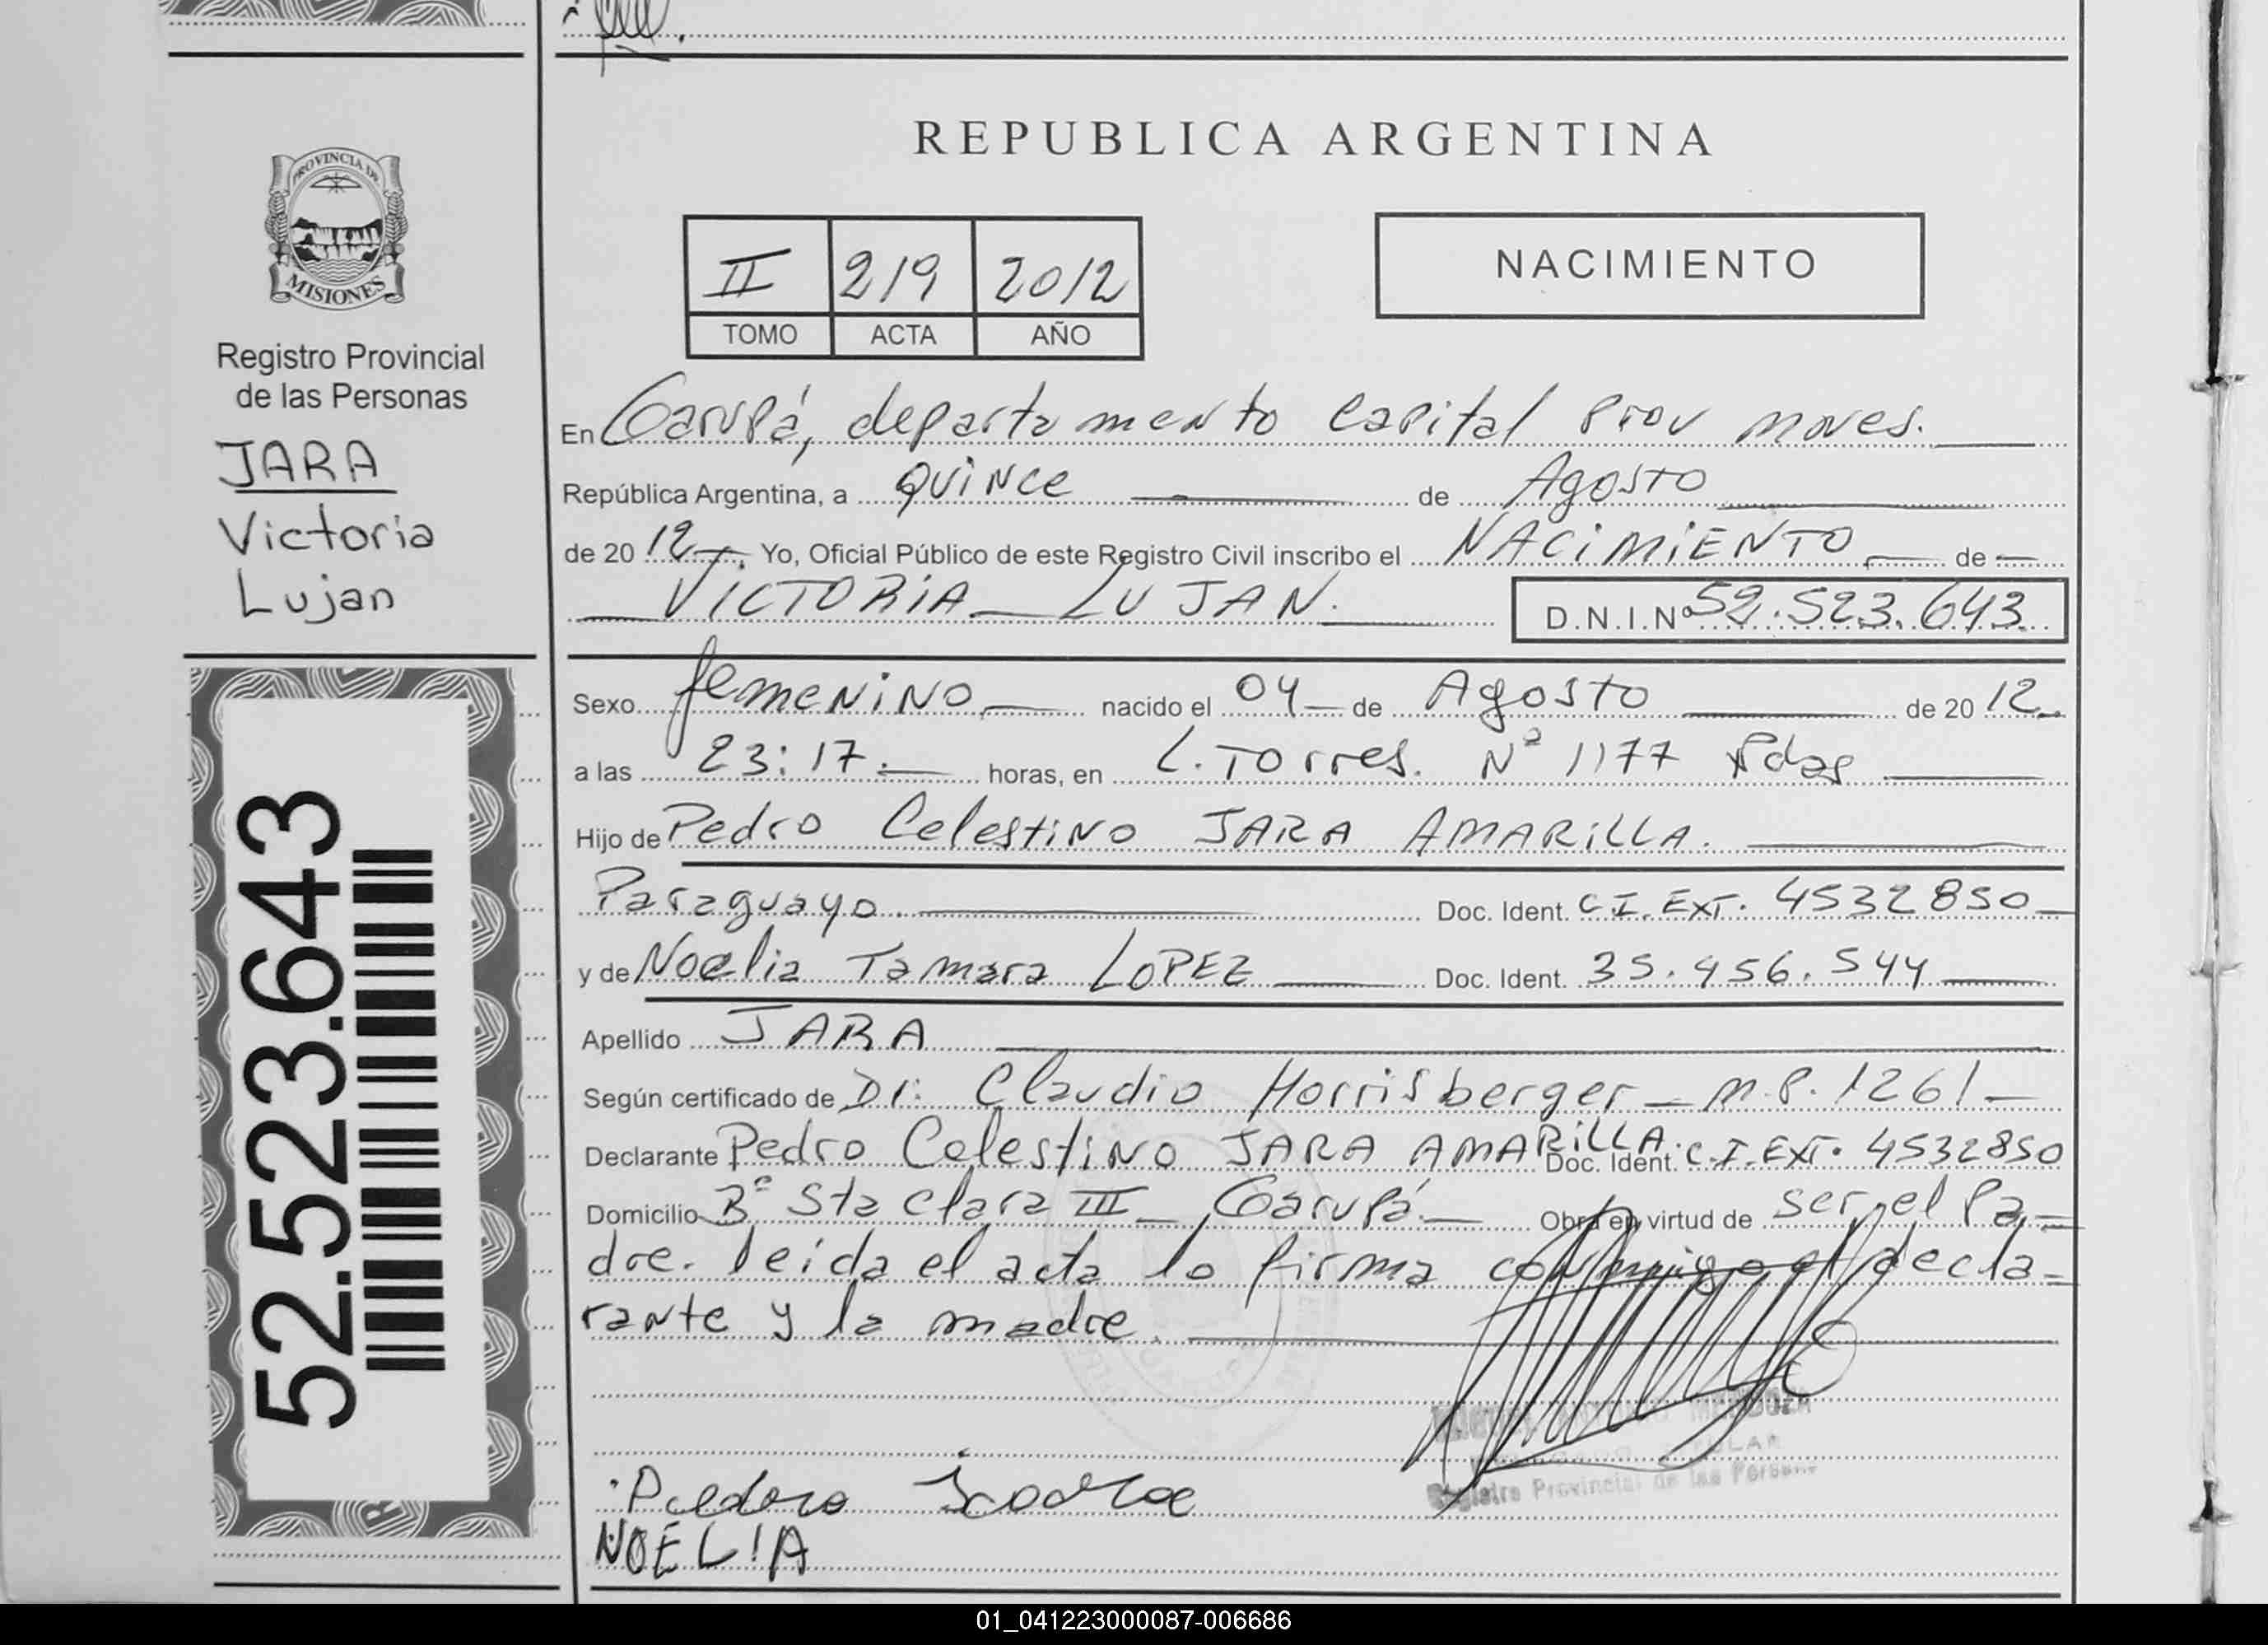 REPUBLICA ARGENTINA
PROVINCIA DE
MISIONES
Registro Provincial
de las Personas
JARA
Victoria
Lujan
52.523.643
II 219 2012
TOMO ACTA AÑO
NACIMIENTO
En Garupá, departamento Capital Prov mnes.
República Argentina, a Quince de Agosto
de 2012. Yo, Oficial Público de este Registro Civil inscribo el NACIMIENTO de
VICTORIA LUJAN. D.N.I.Nº 52.523.643
Sexo femenino nacido el 04 de Agosto de 2012
a las 23:17 horas, en L. Torres. Nº 1177 Pdas
Hijo de Pedro Celestino JARA AMARILLA.
Paraguayo Doc. Ident. C.I. EXT. 4532850
y de Noelia Tamara LOPEZ Doc. Ident. 35.456.544
Apellido JARA
Según certificado de Dr: Claudio Horrisberger - m.p. 1261
Declarante Pedro Celestino JARA AMARILLA. Doc. Ident. C.I. EXT. 4532850
Domicilio Bº Sta Clara III - Garupá. Obra en virtud de ser el Pa-
dre. leida el acta lo firma conmigo el decla-
rante y la madre.
Registro Provincial de las Personas
Pedro
NOELIA
01_041223000087-006686